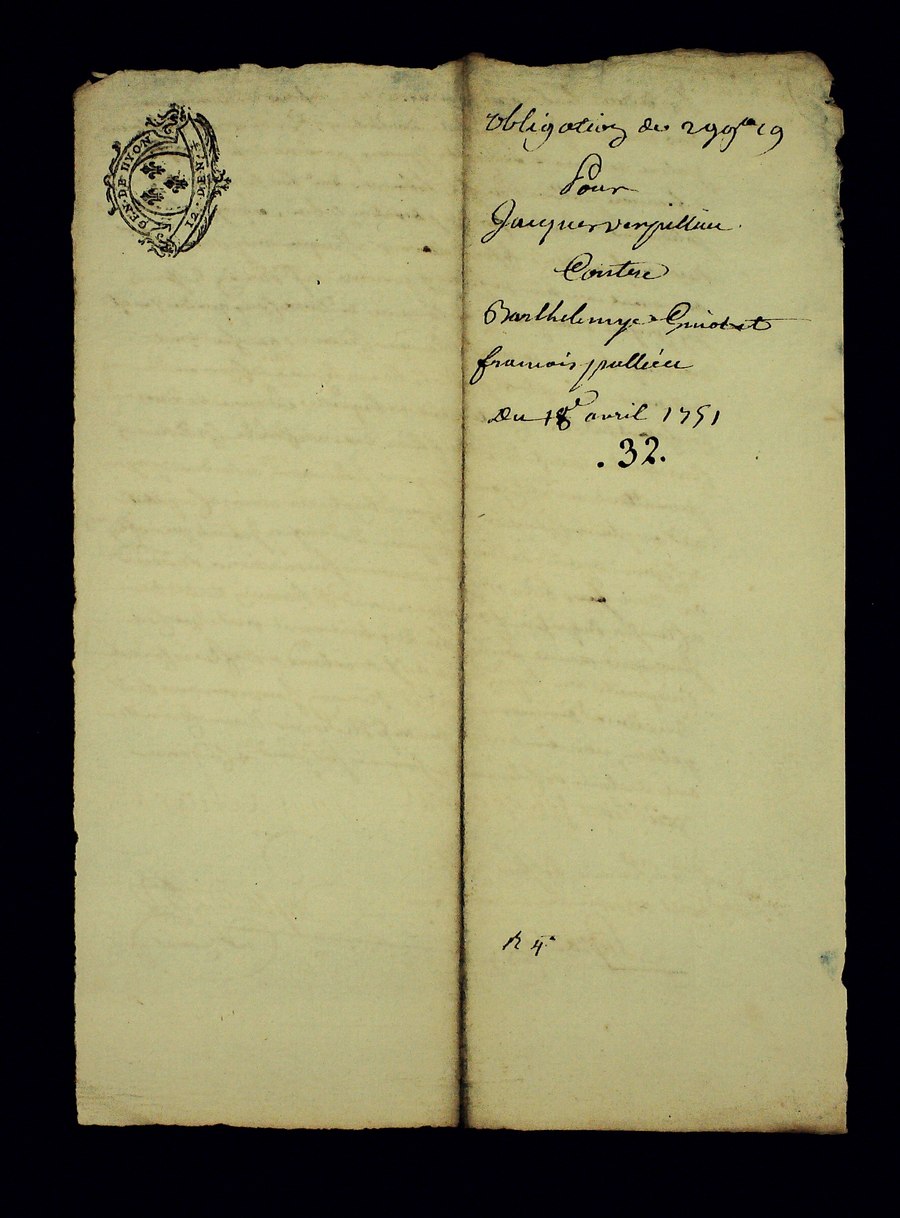 GEN·DE·LYON
12·DEN·
obligation de 299# 19
Pour
Jacques verpillieu
Contre
Barthelemye Guiot et
francois pallieu
du 18e avril 1751
.32.
R 4